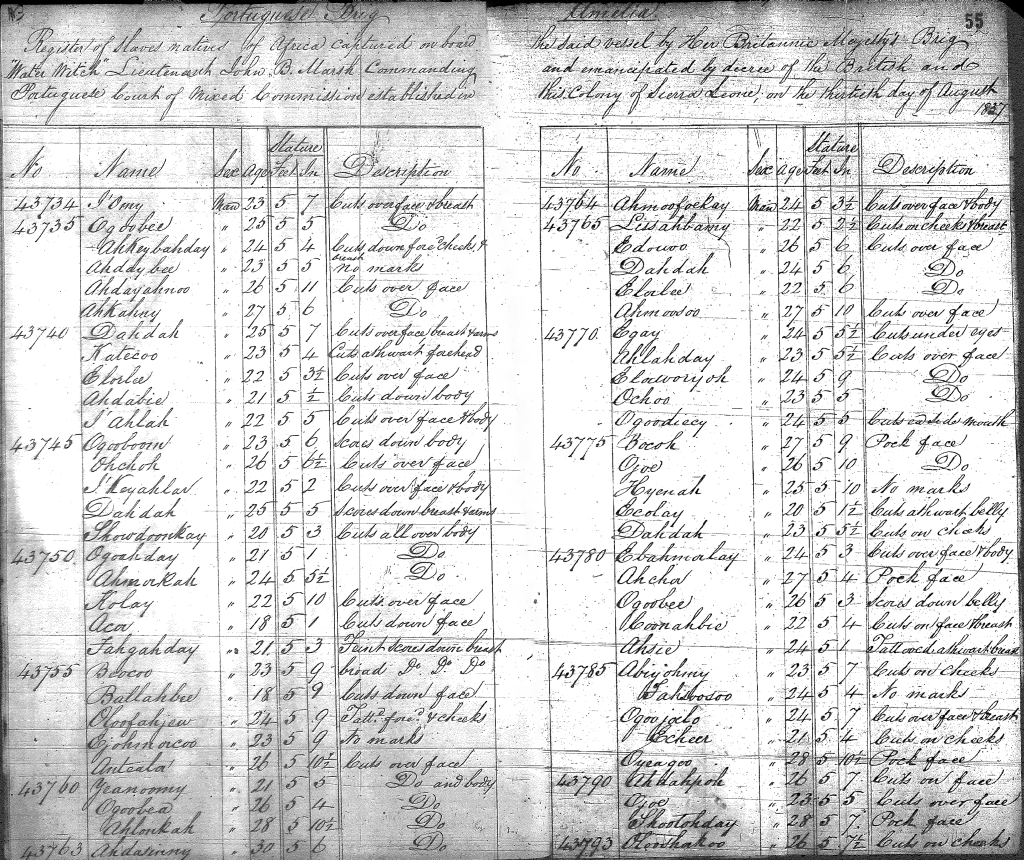 Portuguese Brig
Register of Slaves natives of Africa captured on board
"Water Witch" Lieutenant John B. Marsh Commanding
Portuguese Court of Mixed Commission established in
No Name Sex Age Stature Feet In Description
43734 I'Omy Man 23 5 7 Cuts over face & breast
43735 Ogdobee " 25 5 5 Do
Ahkeybahday " 24 5 4 Cuts down fore.d cheeks & breast
Ahdaybee " 23 5 5 no marks
Ahdayahnoo " 26 5 11 Cuts over face
Ahkahny " 27 5 6 Do
43740 Dahdah " 25 5 7 Cuts over face breast & arms
Katecoo " 23 5 4 Cuts athwart forehead
Elorlee " 22 5 3½ Cuts over face
Ahdabie " 21 5 ½ Cuts down body
I'Ahlah " 22 5 5 Cuts over face & body
43745 Ogoboom " 23 5 6 Scores down body
Ohchoh " 26 5 6½ Cuts over face
I'Keyahlar " 22 5 2 Cuts over face & body
Dahdah " 25 5 5 Scores down breast & arms
Showdoonkay " 20 5 3 Cuts all over body
43750 Ogoahday " 21 5 1 Do
Ahmorkah " 24 5 5½ Do
Kolay " 22 5 10 Cuts over face
Acor " 18 5 1 Cuts down face
Fahgahday " 21 5 3 Faint Scores down breast
43755 Boocoo " 23 5 9 broad Do Do Do
Bullahbee " 18 5 9 Cuts down face
Oloofahjea " 24 5 9 Tatt.d fore.d & cheeks
Ejohmorcoo " 23 5 9 No marks
Antcala " 26 5 10½ Cuts over face
43760 Yeanoomy " 21 5 5 Do and body
Ogoobea " 26 5 4 Do
Ahlonkah " 28 5 10½ Do
43763 Ahdasinny " 30 5 6 Do
Amelia
55
the said vessel by Her Britannic Majesty's Brig
and emancipated by decree of the British and
this Colony of Sierra Leone, on the thirtieth day of August
1837
No Name Sex Age Stature Feet In Description
43764 Ahmoofockay Man 24 5 3½ Cuts over face & body
43765 Lissahbamy " 22 5 2½ Cuts on cheeks & breast
Edowoo " 26 5 6 Cuts over face
Dahdah " 24 5 6 Do
Elorlee " 22 5 6 Do
Ahmoosoo " 27 5 10 Cuts over face
43770 Egay " 24 5 5½ Cuts under eyes
Ahlahday " 23 5 5½ Cuts over face
Elaworyoh " 24 5 9 Do
Ochoo " 23 5 5 Do
Ogoodiecy " 24 5 5 Cuts ea side mouth
43775 Bocoh " 27 5 9 Pock face
Ojoe " 26 5 10 Do
Hyenah " 25 5 10 No marks
Ecolay " 20 5 1½ Cuts athwart belly
Dahdah " 23 5 5½ Cuts on cheeks
43780 Ebahmalay " 24 5 3 Cuts over face & body
Ahcha " 27 5 4 Pock face
Ogoobee " 26 5 3 Scores down belly
Coonahbie " 22 5 4 Cuts on face & breast
Ahsie " 24 5 1 Tattooed athwart breast
43785 Abiyohmy " 23 5 7 Cuts on cheeks
Takoosoo " 24 5 4 No marks
Ogoojolo " 24 5 7 Cuts over face & breast
Echeer " 21 5 4 Cuts on cheeks
Oyeagoo " 28 5 10½ Pock face
43790 Ahdahpoh " 26 5 7 Cuts on face
Ojoe " 23 5 5 Cuts over face
Shootohday " 28 5 7 Pock face
43793 Oloohakoo " 26 5 7½ Cuts on cheeks